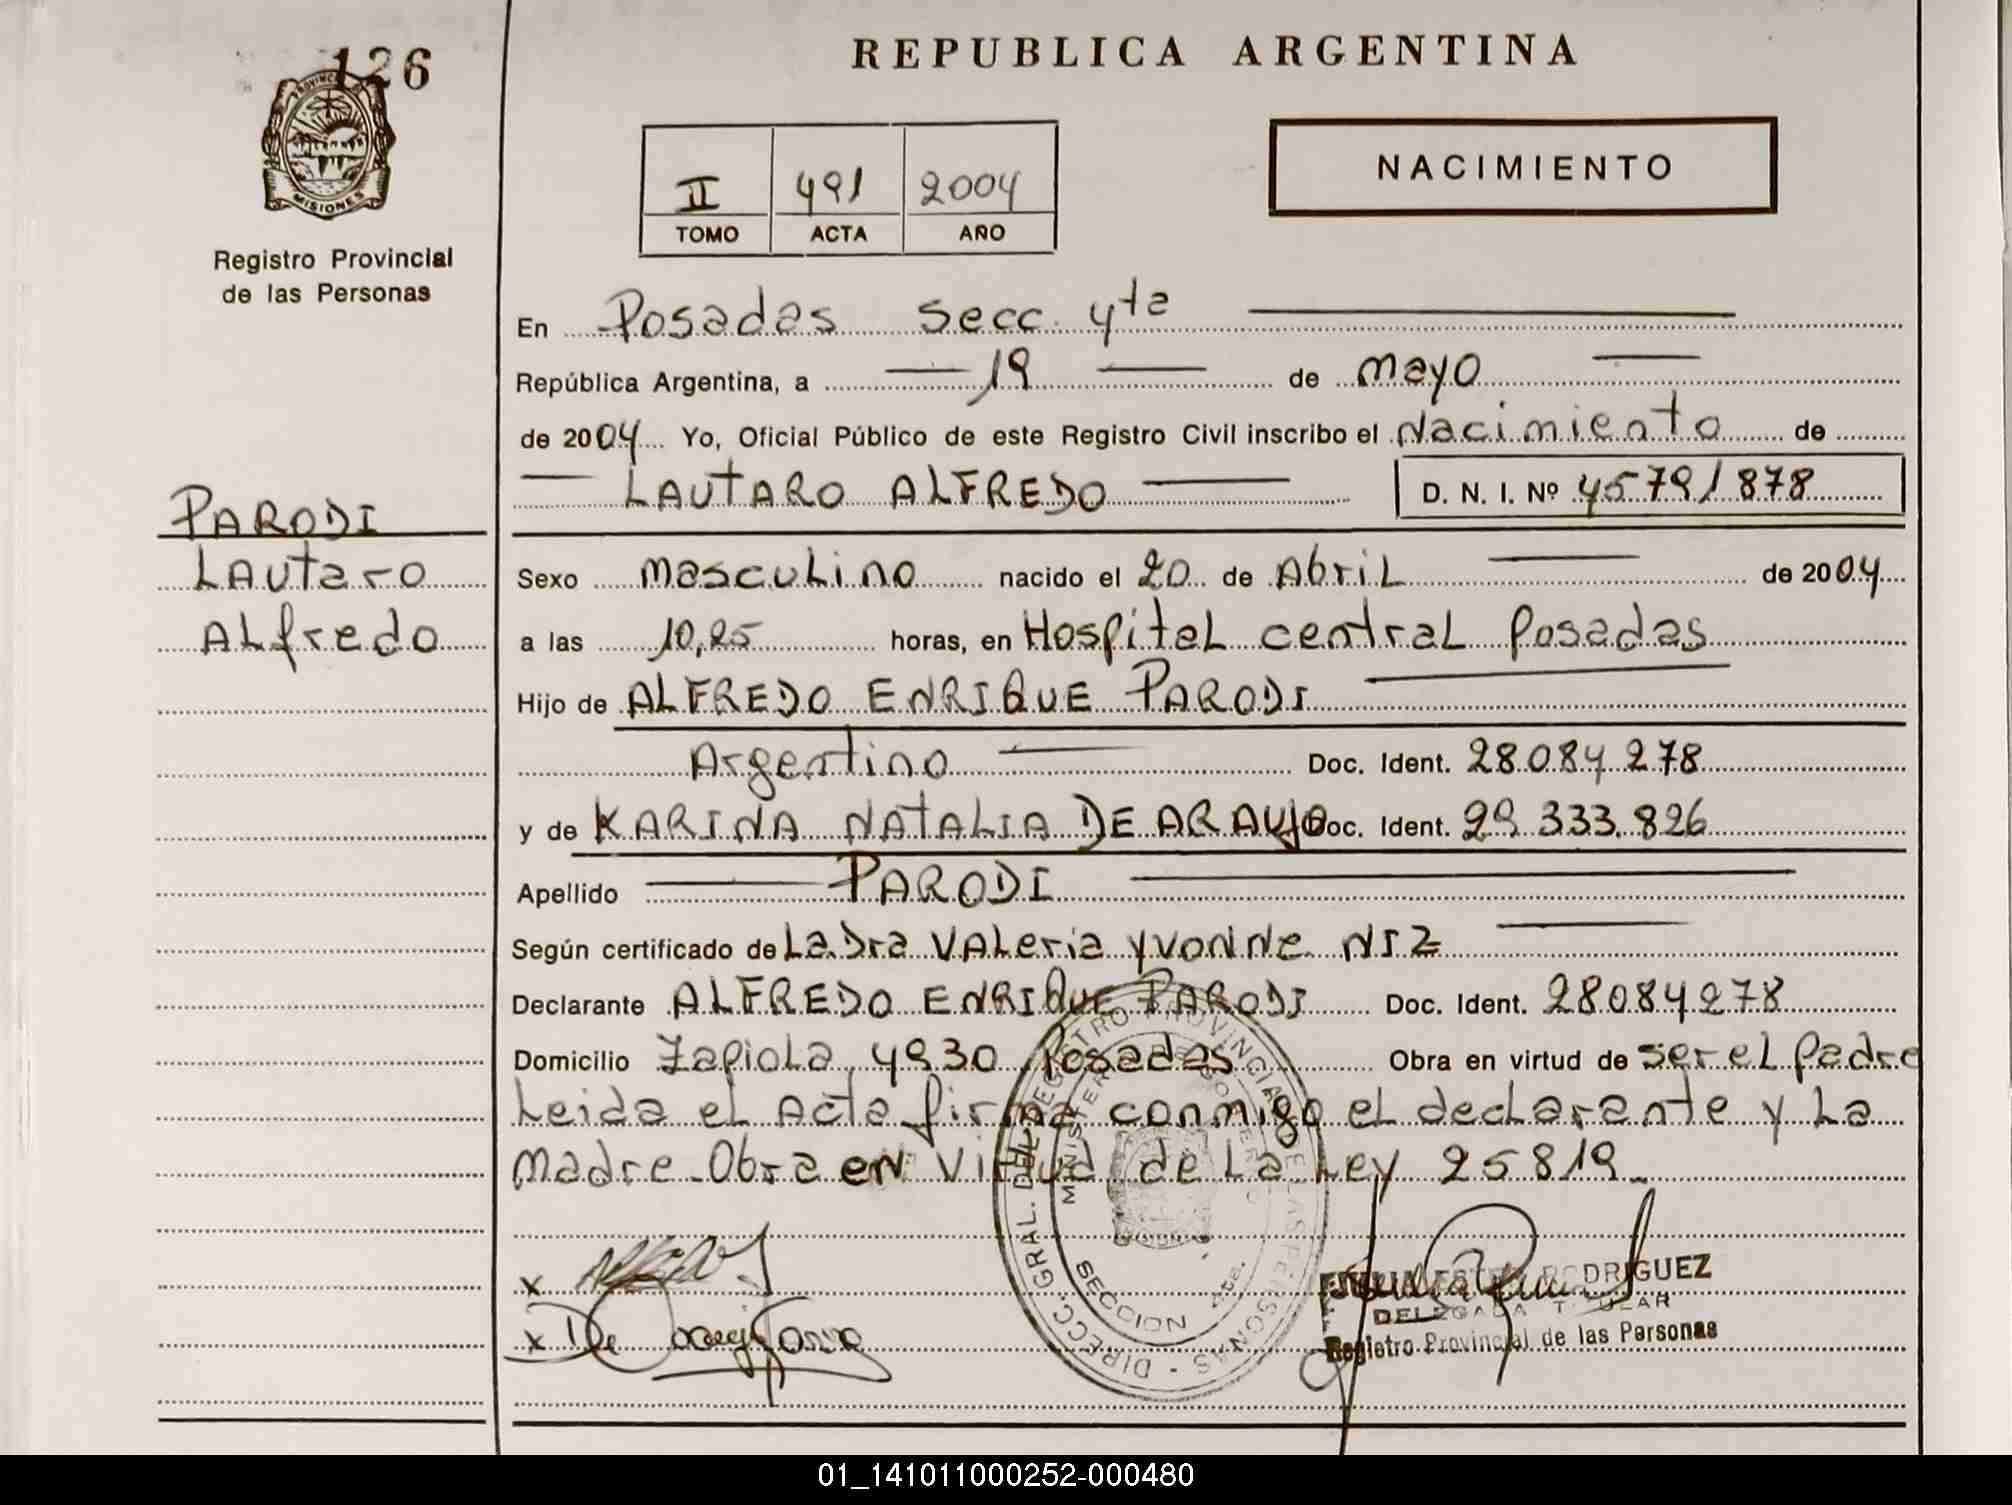 126
PROVINCIA DE
MISIONES
Registro Provincial
de las Personas
PARODI
Lautaro
Alfredo
REPUBLICA ARGENTINA
II 491 2004
TOMO ACTA AÑO
NACIMIENTO
En Posadas secc. 4ta
República Argentina, a 19 de mayo
de 2004 Yo, Oficial Público de este Registro Civil inscribo el Nacimiento de
LAUTARO ALFREDO D. N. I. Nº 45791878
Sexo masculino nacido el 20 de Abril de 2004
a las 10,25 horas, en Hospital central Posadas
Hijo de ALFREDO ENRIQUE PARODI
Argentino Doc. Ident. 28.084.278
y de KARINA NATALIA DE ARAUJO Doc. Ident. 29.333.826
Apellido PARODI
Según certificado de La Dra Valeria Yvonne
Declarante ALFREDO ENRIQUE PARODI Doc. Ident. 28084278
Domicilio Zapiola 4930 Posadas Obra en virtud de ser el padre
Leida el Acta firma conmigo el declarante y La
madre-Obra en virtud de La Ley 25819-
DIRECC. GRAL. DEL REGISTRO PROVINCIAL DE LAS PERSONAS
MINISTERIO DE GOBIERNO
SECCION 4ta.
x
x
RODRIGUEZ
DELEGADA TITULAR
Registro Provincial de las Personas
01_141011000252-000480